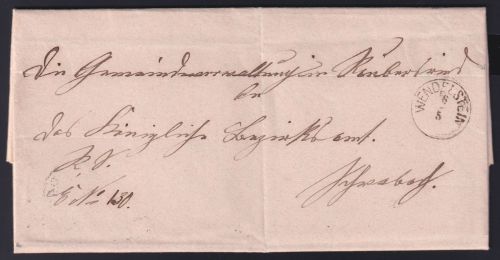 Die Gemeindeverwaltung in Raubersried
an
das Königliche Bezirksamt.
R. S.
E No 130.
Schwabach.
WENDELSTEIN
6
5